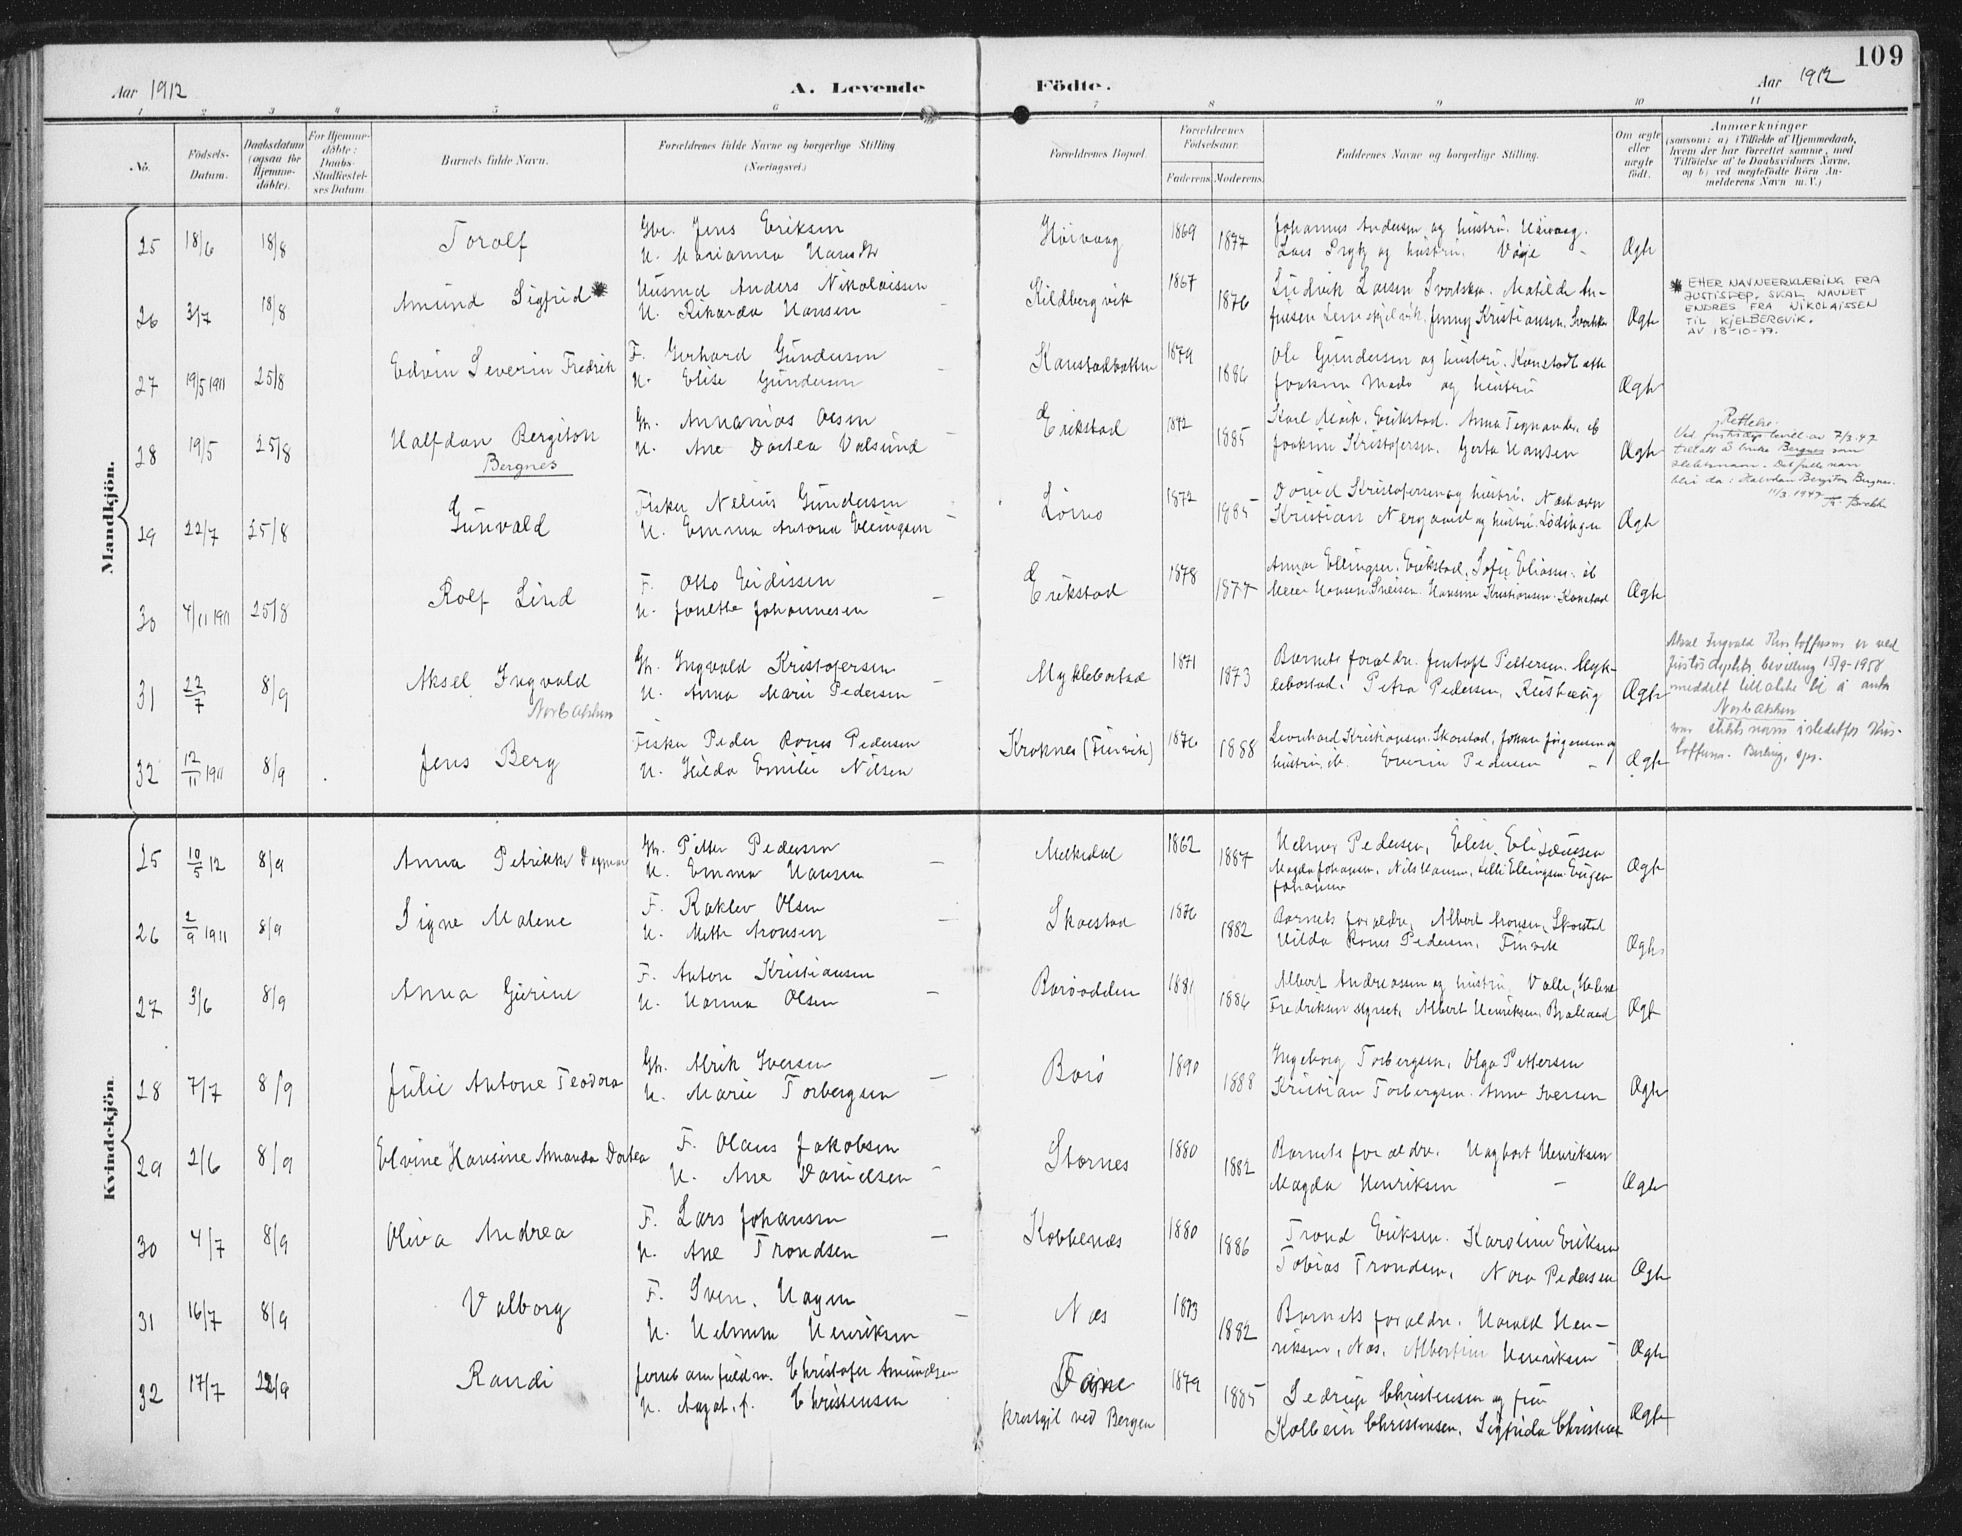 109
Aar 1912
A. Levende
Födte.
Aar 1912
1 2 3 4 5 6 7 8 9 10 11
No.
Födsels-Datum.
Daabsdatum (ogsaa for Hjemme-döbte).
For Hjemme-döbte: Daabs-Stadfæstel-ses Datum
Barnets fulde Navn.
Forældrenes fulde Navne og borgerlige Stilling (Næringsvei.)
Forældrenes Bopæl.
Forældrenes Födselsaar.
Faderens Moderens
Faddernes Navne og borgerlige Stilling.
Om ægte eller uægte födt.
Anmærkninger
(saasom: a) i Tilfælde af Hjemmedaab, hvem der har forrettet samme, med Tilföielse af to Daabsvidners Navne, og b) ved uægtefödte Börn An-melderens Navn m. V.)
Mandkjön.
25 18/6 18/8 Torolf Gbr. Jens Eriksen
H. Marianna
1869 1877 Johannes Andersen og hustru.
og hustru. Ægte
26 3/7 18/8 Amund Sigfrid * Husmd Anders Nikolaissen
H. Rikarda Hansen
Kildbergvik 1867 1876 Ludvik Larsen Matilde An-
Jenny Kristiansen. Ægte
* ETTER NAVNEERKLÆRING FRA
JUSTISDEP. SKAL NAVNET
ENDRES FRA NIKOLAISSEN
TIL KJELBERGVIK.
AV 18-10-77.
27 19/5 1911 25/8 Edvin Severin Fredrik F. Gerhard Gundersen
H. Elise Gundersen
Kanstadbotten 1879 1886 Ole Gundersen og hustru.
Joakim og hustru Ægte
28 19/5 25/8 Halfdan Bergiton
Bergnes
Gbr. Annanias Olsen
H. Ane Dortea Valsund
Erikstad 1885 Karl Erikstad. Anna
Joakim Kristofersen. Gerta Hansen Ægte
Rettelse:
Ved justisdep. bevill. av 7/3.47
tillatt å bruke Bergnes som
slektsnavn. Det fulle navn
blir da: Halvdan Bergiton Bergnes.
11/3.1947
29 22/7 25/8 Gunvald Fisker Nelius Gundersen
H. Emma Antona Ellingsen
1872 1885 David Kristofersen og hustru.
Kristian Nergaard og hustru. Lödingen Ægte
30 4/11 1911 25/8 Rolf Lind F. Otto Eidissen
H. Jonette Johannesen
Erikstad 1878 1877 Ellingsen. Erikstad, Sofie Eliassen. ib
Hansen Hansine Kristiansen. Kanstad Ægte
31 22/7 8/9 Aksel Ingvald
Gbr. Ingvald Kristofersen
H. Anna Marie Pedersen
Myklebostad 1871 1873 Barnets forældre. Pettersen. Myk-
lebostad. Petra Pedersen, Ægte
Aksel Ingvald Kristoffersen er ved
justisdeptets bevilling 15/9-1958
meddelt tillatelse til å anta
som slektsnavn istedetfor Kris-
toffersen.
32 12/11 1911 8/9 Jens Berg Fisker Peder Rones Pedersen
H. Hilda Emilie Nilsen
Kroknes (Finvik) 1876 1888 Leonhard Kristiansen. Skarstad, Johan Jörgensen og
hustru, ib. Pedersen Ægte
Kvindekjön.
25 10/5 12 8/9 Anna Petrikke Dagmar Gbr. Pitter Pedersen
H. Emma Hansen
Melkedal 1862 1887 Helmer Pedersen, Elise
Magda Johansen. Nils Hansen, Lilli Ellingsen Eugen
Johansen Ægte
26 2/9 1911 8/9 Signe Malene F. Raklev Olsen
H. Mette Aronsen
Skarstad 1876 1882 Barnets forældre, Albert Aronsen, Skarstad
Hilda Rones Pedersen, Finvik Ægte
27 3/6 8/9 Anna Gurine F. Anton Kristiansen
H. Hanna Olsen
Baröodden 1881 1886 Albert Andreassen og hustru, Valle,
Fredriksen Myrset, Albert Henriksen. Ægte
28 7/7 8/9 Julie Antone Teodora Gbr. Alrik Iversen
H. Marie Torbergsen
Barö 1890 1888 Ingeborg Torbergsen, Olga Pettersen
Kristian Torbergsen. Anna Iversen Ægte
29 2/6 8/9 Elvine Hansine Amanda Dortea F. Olaus Jakobsen
H. Ane Danielsen
Stornes 1880 1882 Barnets forældre. Hagbart Henriksen
Magda Henriksen Ægte
30 4/7 8/9 Oliva Andrea F. Lars Johansen
H. Ane Trondsen
Kobbenæs 1880 1886 Trond Eriksen. Karoline Eriksen
Tobias Trondsen, Nora Pedersen Ægte
31 16/7 8/9 Valborg F. Sven. Hagen
H. Helmine Henriksen
Næs 1873 1882 Barnets forældre. Harald Hen-
riksen, Næs, Albertine Henriksen Ægte
32 17/7 22/9 Randi Christofer Amundsen
H. Christensen
ved Bergen 1879 1885 Christensen og frue
Kolbein Christensen, Sigfrida Ægte